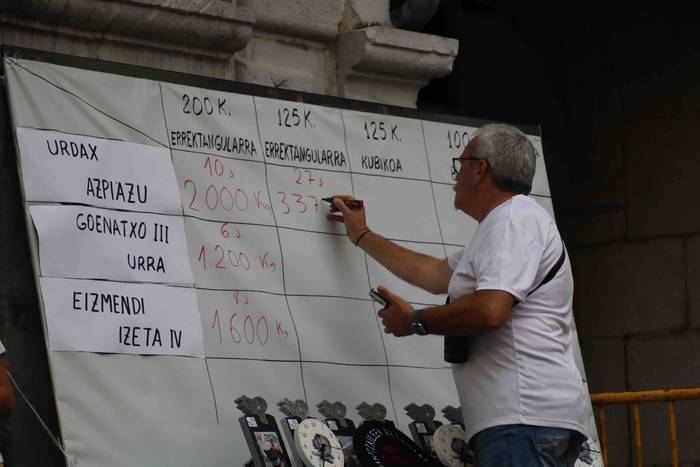 200 K.
ERREKTANGULARRA
125 K.
ERREKTANGULARRA
125 K.
KUBIKOA
100
URDAX
AZPIAZU
10s
2000 K.
27s
337
GOENATXO III
URRA
6s
1.200 K.
EIZMENDI
IZETA IV
8s
1600 K.